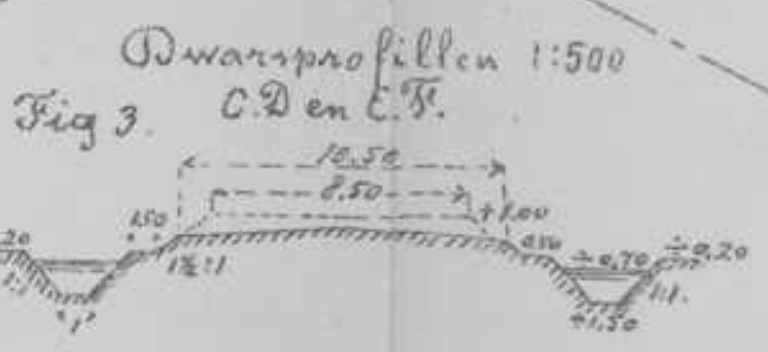 Dwarsprofillen 1:500
Fig 3. C.D en E.F.
10.50
8.50
+1.00
1.50
0.50
20
÷0.70
÷0.20
1:1
1½:1
1:1.
"1"
÷1.50